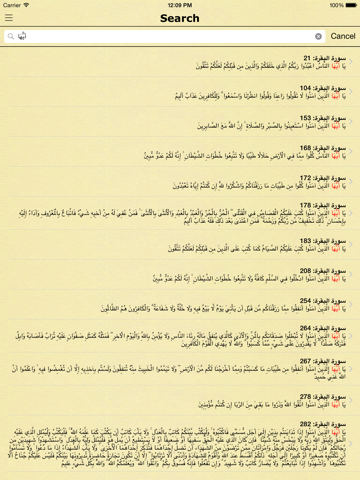 Carrier 12:09 PM 100%
Search
أَيُّهَا Cancel
سورة البقرة: 21
يَا أَيُّهَا النَّاسُ اعْبُدُوا رَبَّكُمُ الَّذِي خَلَقَكُمْ وَالَّذِينَ مِن قَبْلِكُمْ لَعَلَّكُمْ تَتَّقُونَ
سورة البقرة: 104
يَا أَيُّهَا الَّذِينَ آمَنُوا لَا تَقُولُوا رَاعِنَا وَقُولُوا انظُرْنَا وَاسْمَعُوا ۗ وَلِلْكَافِرِينَ عَذَابٌ أَلِيمٌ
سورة البقرة: 153
يَا أَيُّهَا الَّذِينَ آمَنُوا اسْتَعِينُوا بِالصَّبْرِ وَالصَّلَاةِ ۚ إِنَّ اللَّهَ مَعَ الصَّابِرِينَ
سورة البقرة: 168
يَا أَيُّهَا النَّاسُ كُلُوا مِمَّا فِي الْأَرْضِ حَلَالًا طَيِّبًا وَلَا تَتَّبِعُوا خُطُوَاتِ الشَّيْطَانِ ۚ إِنَّهُ لَكُمْ عَدُوٌّ مُّبِينٌ
سورة البقرة: 172
يَا أَيُّهَا الَّذِينَ آمَنُوا كُلُوا مِن طَيِّبَاتِ مَا رَزَقْنَاكُمْ وَاشْكُرُوا لِلَّهِ إِن كُنتُمْ إِيَّاهُ تَعْبُدُونَ
سورة البقرة: 178
يَا أَيُّهَا الَّذِينَ آمَنُوا كُتِبَ عَلَيْكُمُ الْقِصَاصُ فِي الْقَتْلَى ۖ الْحُرُّ بِالْحُرِّ وَالْعَبْدُ بِالْعَبْدِ وَالْأُنثَىٰ بِالْأُنثَىٰ ۚ فَمَنْ عُفِيَ لَهُ مِنْ أَخِيهِ شَيْءٌ فَاتِّبَاعٌ بِالْمَعْرُوفِ وَأَدَاءٌ إِلَيْهِ
بِإِحْسَانٍ ۗ ذَٰلِكَ تَخْفِيفٌ مِّن رَّبِّكُمْ وَرَحْمَةٌ ۗ فَمَنِ اعْتَدَىٰ بَعْدَ ذَٰلِكَ فَلَهُ عَذَابٌ أَلِيمٌ
سورة البقرة: 183
يَا أَيُّهَا الَّذِينَ آمَنُوا كُتِبَ عَلَيْكُمُ الصِّيَامُ كَمَا كُتِبَ عَلَى الَّذِينَ مِن قَبْلِكُمْ لَعَلَّكُمْ تَتَّقُونَ
سورة البقرة: 208
يَا أَيُّهَا الَّذِينَ آمَنُوا ادْخُلُوا فِي السِّلْمِ كَافَّةً وَلَا تَتَّبِعُوا خُطُوَاتِ الشَّيْطَانِ ۚ إِنَّهُ لَكُمْ عَدُوٌّ مُّبِينٌ
سورة البقرة: 254
يَا أَيُّهَا الَّذِينَ آمَنُوا أَنفِقُوا مِمَّا رَزَقْنَاكُم مِّن قَبْلِ أَن يَأْتِيَ يَوْمٌ لَّا بَيْعٌ فِيهِ وَلَا خُلَّةٌ وَلَا شَفَاعَةٌ ۗ وَالْكَافِرُونَ هُمُ الظَّالِمُونَ
سورة البقرة: 264
يَا أَيُّهَا الَّذِينَ آمَنُوا لَا تُبْطِلُوا صَدَقَاتِكُم بِالْمَنِّ وَالْأَذَىٰ كَالَّذِي يُنفِقُ مَالَهُ رِئَاءَ النَّاسِ وَلَا يُؤْمِنُ بِاللَّهِ وَالْيَوْمِ الْآخِرِ ۖ فَمَثَلُهُ كَمَثَلِ صَفْوَانٍ عَلَيْهِ تُرَابٌ فَأَصَابَهُ وَابِلٌ
فَتَرَكَهُ صَلْدًا ۖ لَّا يَقْدِرُونَ عَلَىٰ شَيْءٍ مِّمَّا كَسَبُوا ۗ وَاللَّهُ لَا يَهْدِي الْقَوْمَ الْكَافِرِينَ
سورة البقرة: 267
يَا أَيُّهَا الَّذِينَ آمَنُوا أَنفِقُوا مِن طَيِّبَاتِ مَا كَسَبْتُمْ وَمِمَّا أَخْرَجْنَا لَكُم مِّنَ الْأَرْضِ ۖ وَلَا تَيَمَّمُوا الْخَبِيثَ مِنْهُ تُنفِقُونَ وَلَسْتُم بِآخِذِيهِ إِلَّا أَن تُغْمِضُوا فِيهِ ۚ وَاعْلَمُوا أَنَّ
اللَّهَ غَنِيٌّ حَمِيدٌ
سورة البقرة: 278
يَا أَيُّهَا الَّذِينَ آمَنُوا اتَّقُوا اللَّهَ وَذَرُوا مَا بَقِيَ مِنَ الرِّبَا إِن كُنتُم مُّؤْمِنِينَ
سورة البقرة: 282